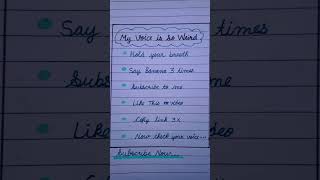 My Voice is So Weird
Hold your breath
Say Banana 3 times
Subscribe to me
Like This video
Copy link 3x
Now check your voice...
Subscribe Now...
Say
times
Subscribe
Like
video